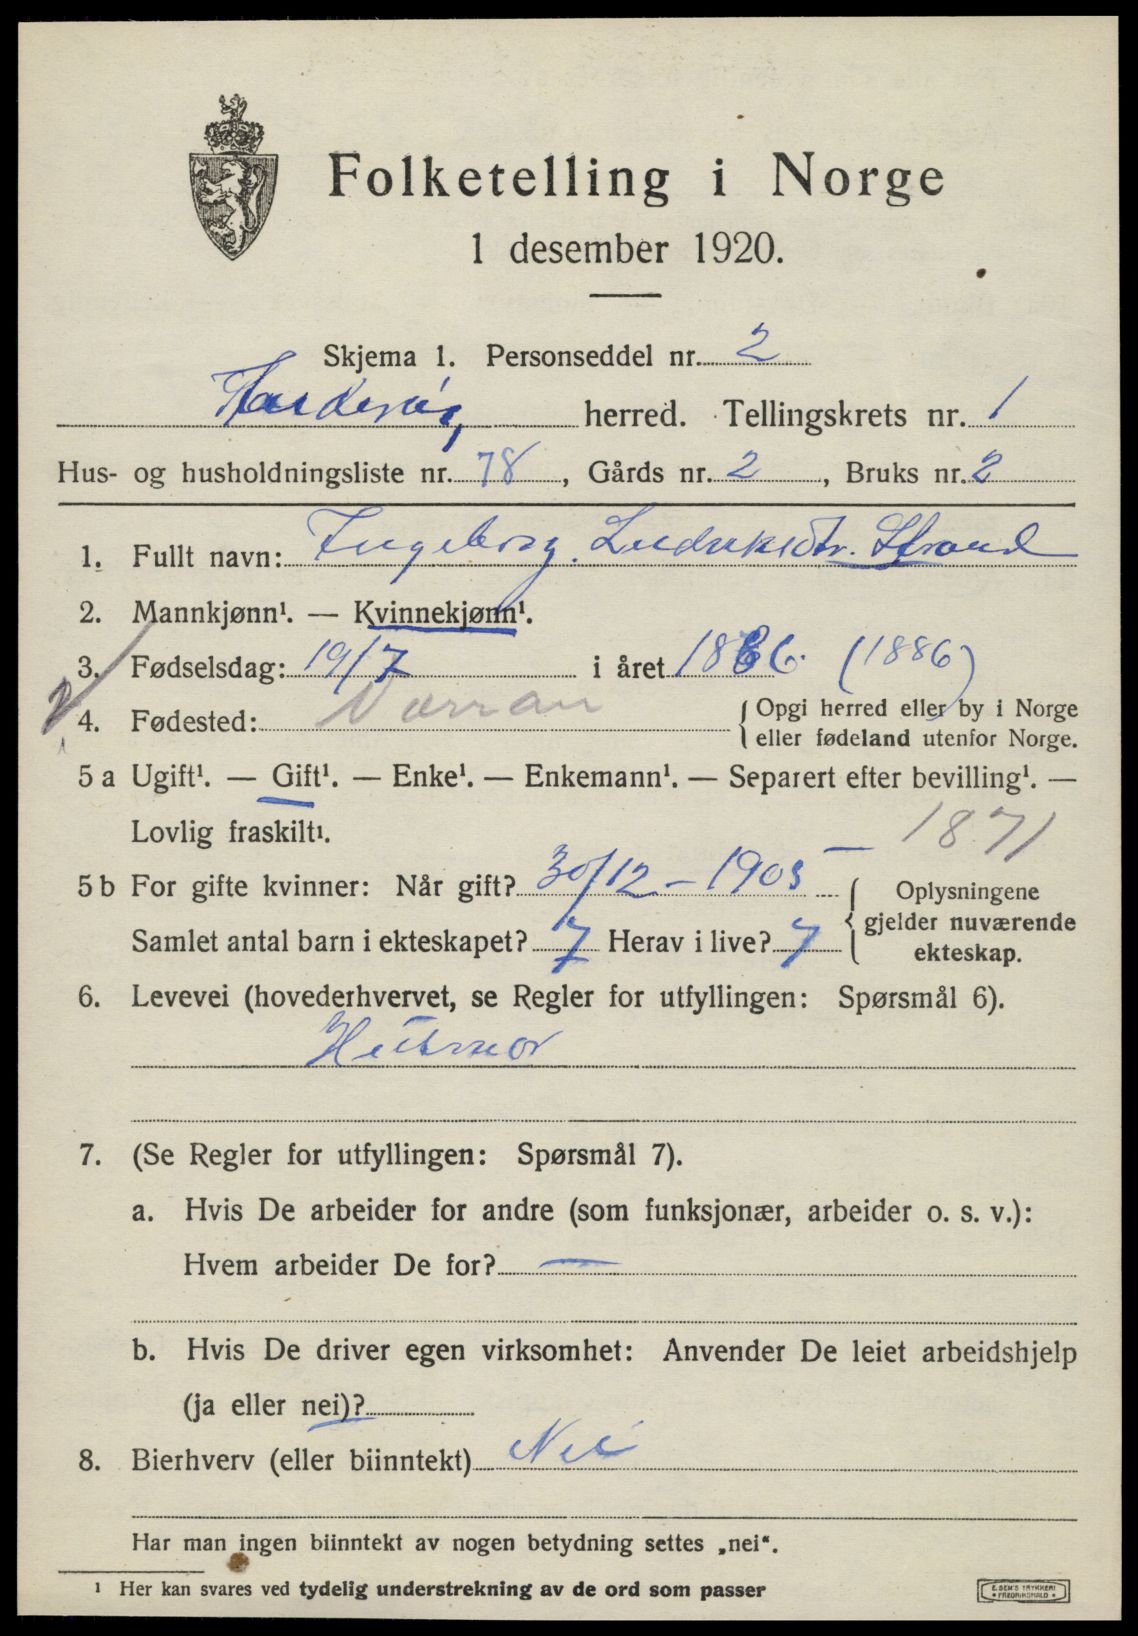 Folketelling i Norge
1 desember 1920.
Skjema 1. Personseddel nr. 2
herred. Tellingskrets nr. 1
Hus- og husholdningsliste nr. 78, Gårds nr. 2, Bruks nr. 2
1. Fullt navn: Ingeborg Ludviksdtr. Strand
2. Mannkjønn¹. — Kvinnekjønn¹.
3. Fødselsdag: 19/7 i året 1886. (1886)
4. Fødested: Værran { Opgi herred eller by i Norge
eller fødeland utenfor Norge.
5 a Ugift¹. — Gift¹. — Enke¹. — Enkemann¹. — Separert efter bevilling¹. —
Lovlig fraskilt¹. — 1871
5 b For gifte kvinner: Når gift? 30/12 – 1905 { Oplysningene
gjelder nuværende
ekteskap.
Samlet antal barn i ekteskapet? 7 Herav i live? 7
6. Levevei (hovederhvervet, se Regler for utfyllingen: Spørsmål 6).
Husmor
7. (Se Regler for utfyllingen: Spørsmål 7).
a. Hvis De arbeider for andre (som funksjonær, arbeider o. s. v.):
Hvem arbeider De for? —
b. Hvis De driver egen virksomhet: Anvender De leiet arbeidshjelp
(ja eller nei)?
8. Bierhverv (eller biinntekt) Nei
Har man ingen biinntekt av nogen betydning settes „nei“.
¹ Her kan svares ved tydelig understrekning av de ord som passer
E. SEM'S TRYKKERI
• FREDRIKSHALD •